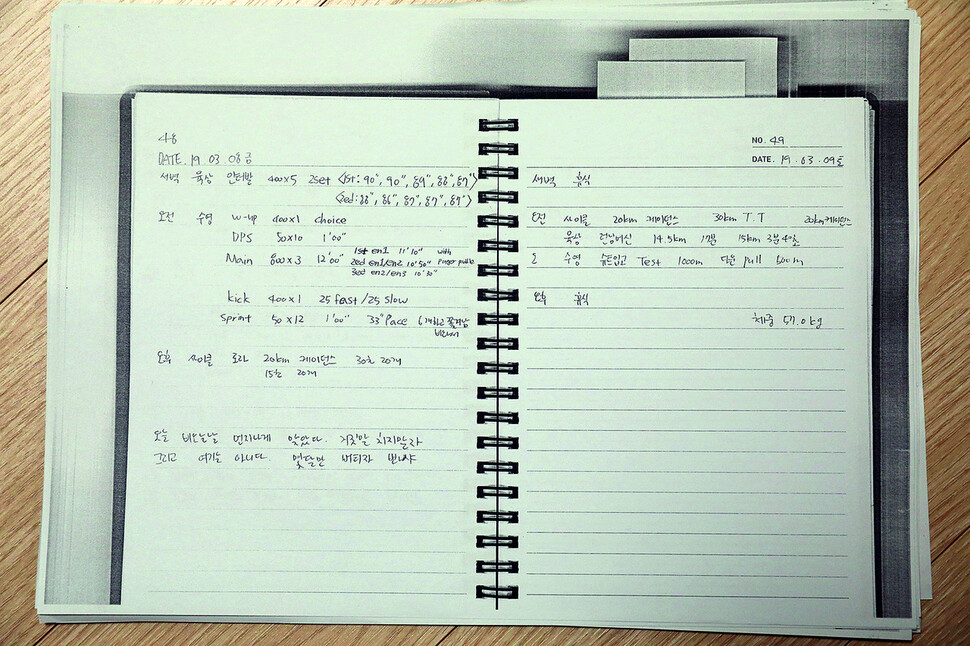 48
DATE. 19 03. 08 금
새벽 육상 인터발 400x5 2set <1st: 90", 90", 89", 88", 87">
<2ed: 88", 86", 87", 87", 87">
오전 수영 W-up 400x1 choice
DPS 50x10 1'00"
Main 800x3 12'00" 1st en1 11'10" with
2ed en1/en2 10'50" finger puddle
3ed en2/en3 10'30"
kick 400x1 25 feast /25 slow
Sprint 50x12 1'00" 33"Pace 6개하고
오후 싸이클 로라 20km 케이던스 30초 20개
15초 20개
오늘 비오는날 먼지나게 맞았다. 거짓말 치지말자
그리고 여기는 아니다. 몇달만 버티자
NO. 49
DATE. 19. 03. 09 토
새벽 휴식
오전 싸이클 20km 케이던스 30km T.T 20km 케이던스
육상 런닝머신 14.5km 17분 15km 3분 42초
수영 슈트입고 Test 1000m 다운 pull 500m
오후 휴식
체중 57.0kg